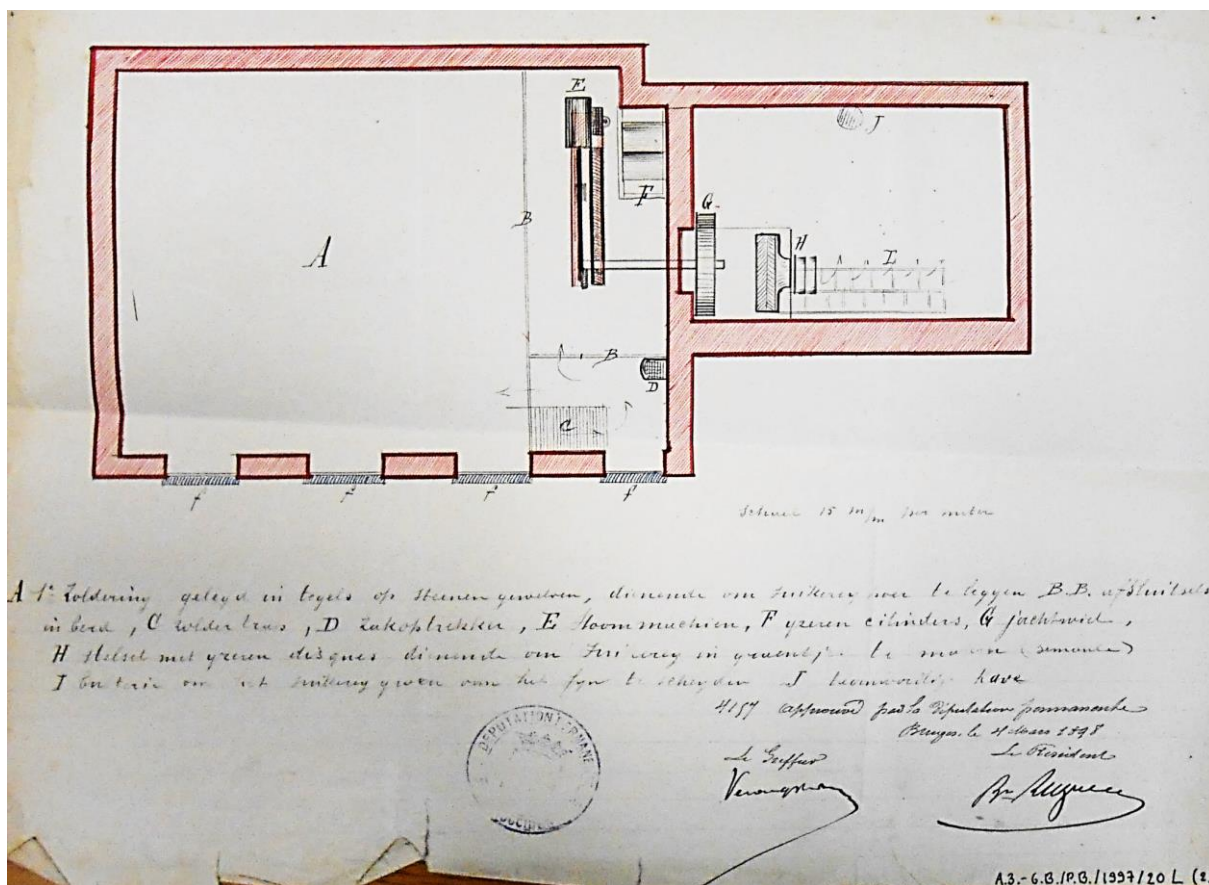 E
J
F
G
B
H
I
A
B
D
C
f f f f
Schaal 15 m/m per meter
A 1e Zoldering gelegd in tegels op steenen gewelven, dienende om suikerij te leggen B.B. afsluitsels
in berd, C zoldertrap, D Zakoptrekker, E Stoommachien, F yzeren cilinders, G jachtwiel,
H Stelsel met yzeren disques dienende om suikerij in te (semoule)
I om het suikerij van het fyn te scheyden J
4157 approuvé par la Députation permanente
Bruges, le 4 Mars 1898
Le Greffier Le Président
DÉPUTATION PERMANE
A.3.-G.B./P.B./1997/20 L (2